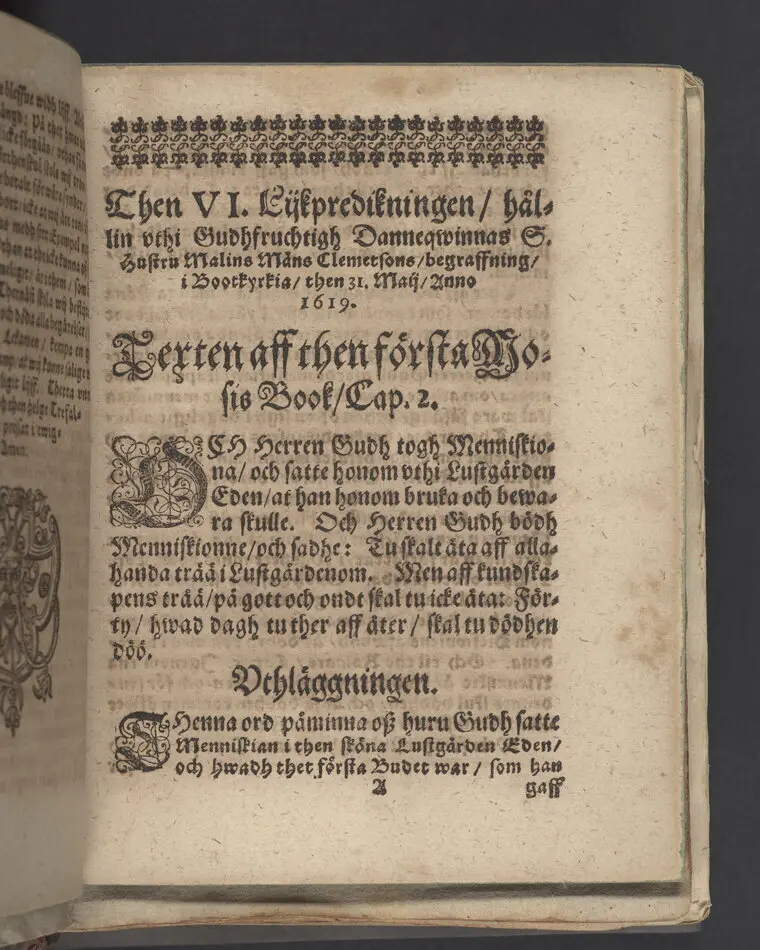 Then VI. Lijkpredikningen / hål-
lin vthi Gudhfruchtigh Danneqwinnas S.
Hustru Malins Måns Clemetsons / begraffning /
i Bootkyrkia / then 31. Maij / Anno
1619.
Texten aff then första Mo-
sis Book / Cap. 2.
OCH Herren Gudh togh Menniskio-
na / och satte honom vthi Lustgården
Eden / at han honom bruka och bewa-
ra skulle. Och Herren Gudh bödh
Menniskionne / och sadhe: Tu skalt äta aff alla-
handa trää i Lustgårdenom. Men aff kundska-
pens trää / på gott och ondt skal tu icke äta: För-
ty / hwad dagh tu ther aff äter / skal tu dödhen
döö.
Vthläggningen.
THenna ord påminna oß huru Gudh satte
Menniskian i then sköna Lustgården Eden /
och hwadh thet första Budet war / som han
A gaff